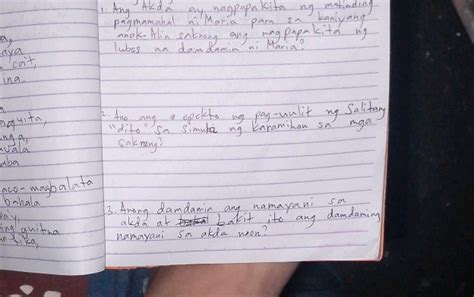 aya
cait,
ina.
aquita,
anga,
wala
mba
aco-magbalata
bahala
1. Ang Akda ay nagpapakita ng matinding
pagmamahal ni Maria para sa kaniyang
anak. Alin saknong ang nagpapakita ng
lubos na damdamin ni Maria?
2. Ano ang epekto ng pag-uulit ng Salitang
"dito" sa simula ng karamihan sa mga
saknong?
3. Anong damdamin ang namayani sa
akda at bakit ito ang damdaming
namayani sa akda